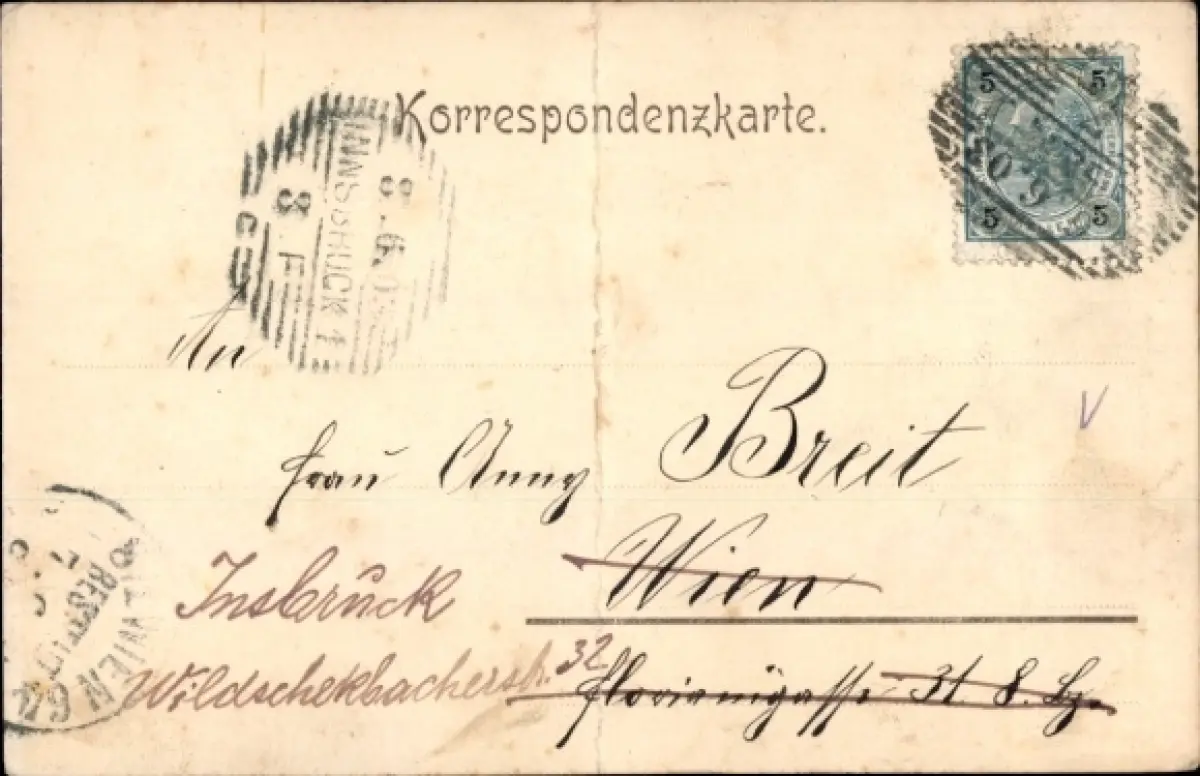 Korrespondenzkarte.
5 5
5 5
INNSBRUCK 1
8.6.0
8.F
An
Frau Anny Breit
Wien
Insbruck
Wildschekbacherstr. 32
Florianigasse 31 8. Bz.
WIEN
BESTELLT